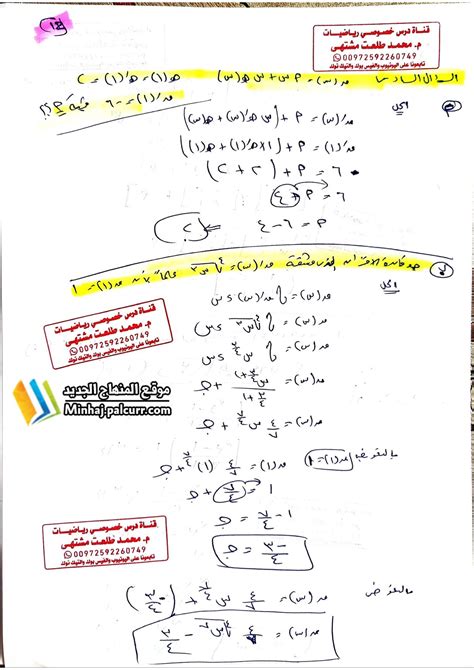 ١٣
قناة درس خصوصي رياضيات
م. محمد طلعت مشتهى
00972592260749
تابعونا على اليوتيوب والفيس بوك والتيك توك
السؤال السادس ق(س) = م س + س هـ(س) هـ(١) = هـَ(١) = ٢
قَ(١) = ٦ قيمة م ؟؟
الحل
قَ(س) = م + س هـَ(س) + هـ(س)
قَ(١) = م + ١ × هـَ(١) + هـ(١)
٦ = م + (٢ + ٢)
٦ = م + ٤
م = ٦ - ٤ = ٢
جد قاعدة الاقتران الذي مشتقته قَ(س) = ⁴√س³ علماً بأن ق(١) = ١
الحل
ق(س) = ∫ قَ(س) ء س
ق(س) = ∫ ⁴√س³ ء س
= ∫ س^(٣/٤) ء س
= س^(٣/٤ + ١) / (٣/٤ + ١) + جـ
ق(س) = ٤/٧ س^(٧/٤) + جـ
بالتعويض ق(١) = ١ ق(١) = ٤/٧ (١)^(٧/٤) + جـ
١ = ٧/٤ + جـ
١ - ٧/٤ = جـ
-٣/٤ = جـ
بالتعويض ق(س) = ٤/٧ س^(٧/٤) + (-٣/٤)
ق(س) = ٤/٧ ⁴√س⁷ - ٣/٤
قناة درس خصوصي رياضيات
م. محمد طلعت مشتهى
00972592260749
تابعونا على اليوتيوب والفيس بوك والتيك توك
موقع المنهاج الجديد
Minhaj.palcurr.com
قناة درس خصوصي رياضيات
م. محمد طلعت مشتهى
00972592260749
تابعونا على اليوتيوب والفيس بوك والتيك توك